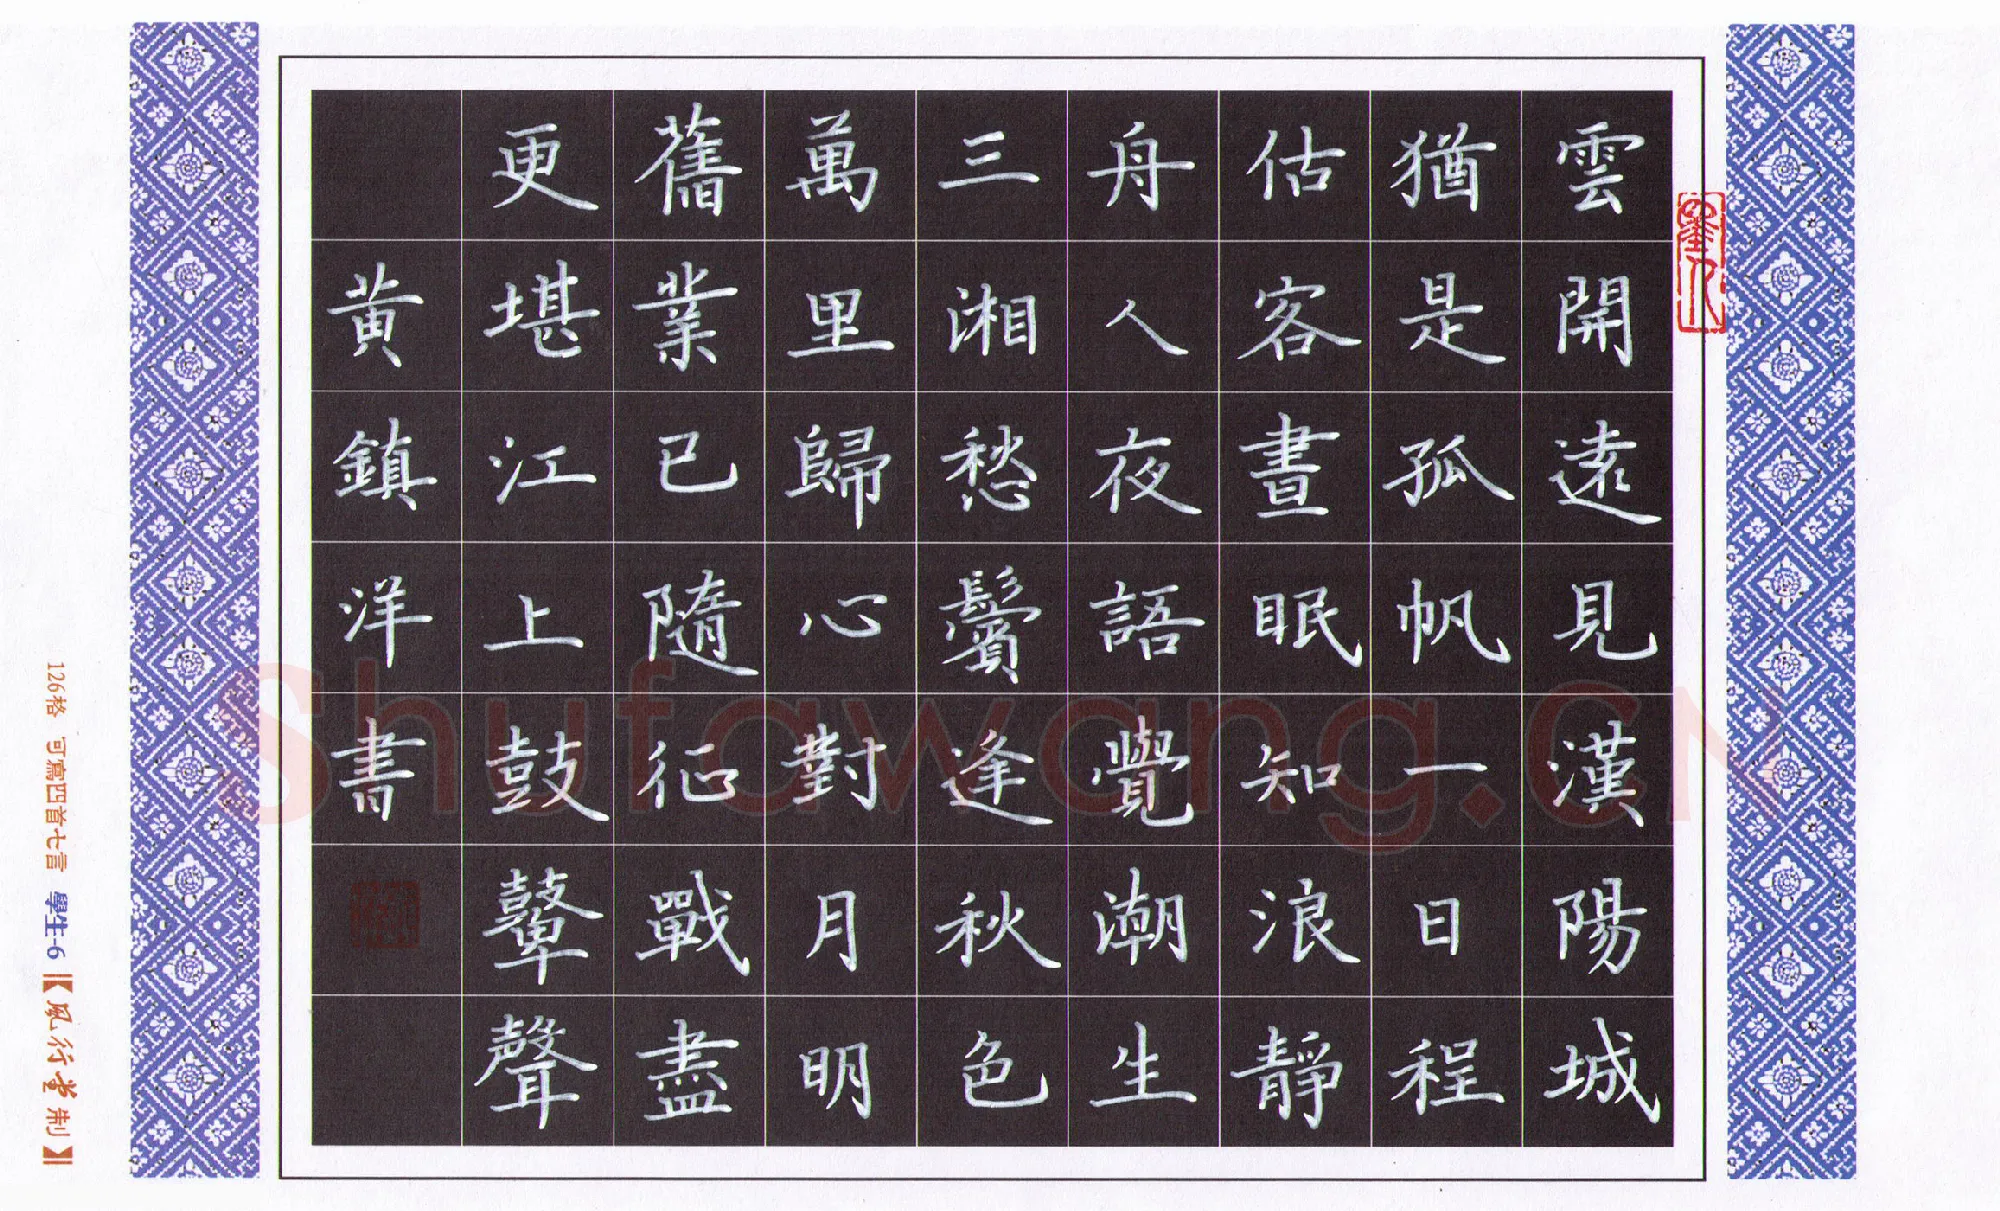 雲開遠見漢陽城
猶是孤帆一日程
估客晝眠知浪靜
舟人夜語覺潮生
三湘愁鬢逢秋色
萬里歸心對月明
舊業已隨征戰盡
更堪江上鼓鼙聲
黄鎮洋書
126格 可寫四首七言 學生-6【風行堂制】
Shufawang.CN